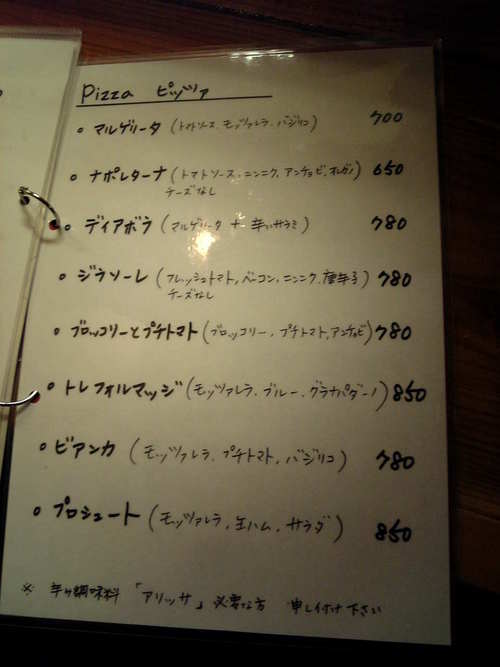 Pizza ピッツァ
○ マルゲリータ (トマトソース、モッツァレラ、バジリコ) 700
○ ナポレターナ (トマトソース・ニンニク、アンチョビ、オレガノ) 650
チーズなし
○ ディアボラ (マルゲリータ + 辛いサラミ) 780
○ ジラソーレ (フレッシュトマト、ベーコン、ニンニク、唐辛子) 780
チーズなし
○ ブロッコリーとプチトマト (ブロッコリー、プチトマト、アンチョビ) 780
○ トレフォルマッジ (モッツァレラ、ブルー、グラナパダーノ) 850
○ ビアンカ (モッツァレラ、プチトマト、バジリコ) 780
○ プロシュート (モッツァレラ、生ハム、サラダ) 850
※ 辛い調味料 「アリッサ」 必要な方 申し付け下さい